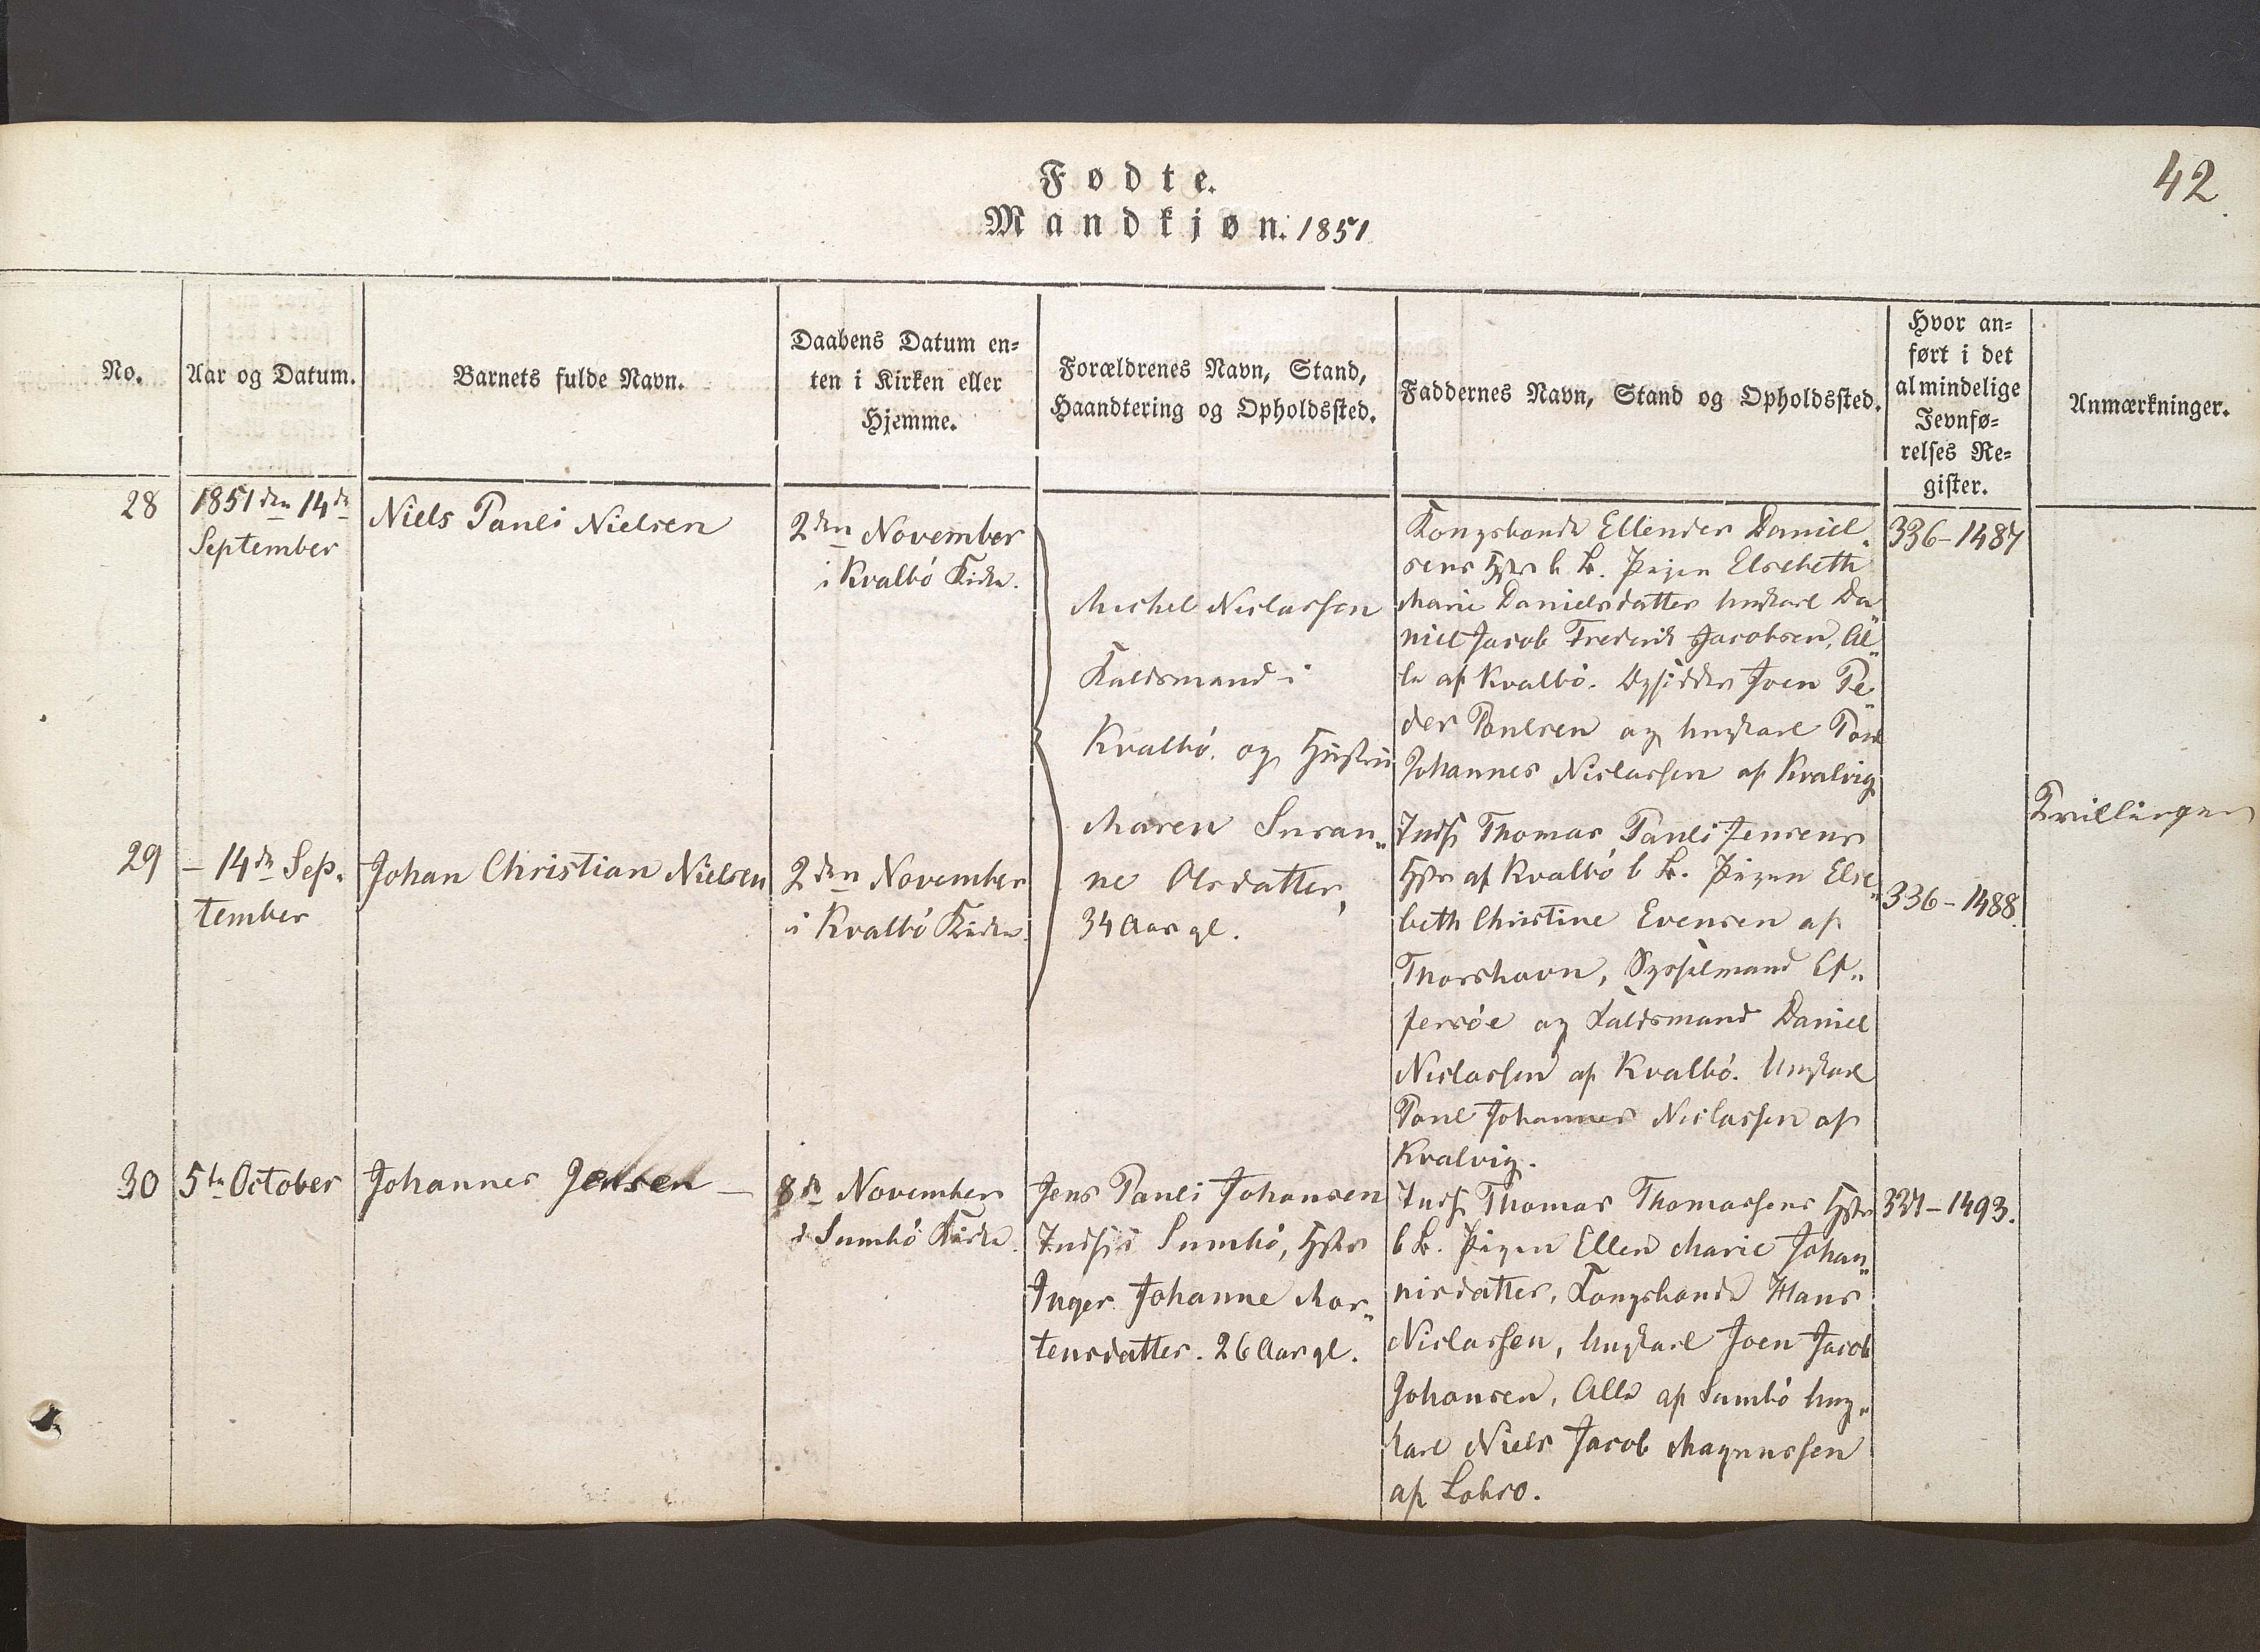 42.
Fødte.
Mandkjøn. 1851
No.
Aar og Datum.
Barnets fulde Navn.
Daabens Datum en-
ten i Kirken eller
Hjemme.
Forældrenes Navn, Stand,
Haandtering og Opholdssted.
Faddernes Navn, Stand og Opholdssted.
Hvor an-
ført i det
almindelige
Jevnfø-
relses Re-
gister.
Anmærkninger.
28
1851 den 14de
September
Niels Pauli Nielsen
2den November
i Kvalbó Kirke.
Michel Niclassen
Faldsmand i
Kvalbó. og Hustru
Maren Susan„
ne Olsdatter,
34 Aar gl.
Kongsbonde Ellender Daniel„
sens Hstr b. B. Pigen Elsebeth
Marie Danielsdatter Ungkarl Da„
niel Jacob Frederik Jacobsen, Al„
le af Kvalbó. Joen Pe„
der Poulsen og Ungkarl Poul
Johannes Niclassen af Kvalvig
336-1487
Tvillinger
29
- 14de Sep„
tember
Johan Christian Nielsen
2den November
i Kvalbó Kirke.
Indsr Thomas Pauli Jensens
Hstr af Kvalbó b B. Pigen Else„
beth Christine Evensen af
Thorshavn, Sysselmand Ef„
fersöe og Faldsmand Daniel
Niclassen af Kvalbó. Ungkarl
Poul Johannes Niclassen af
Kvalvig.
336-1488.
30
5te October
Johannes Jensen -
8de November
i Sumbó Kirke.
Jens Pauli Johansen
Indsr i Sumbó, Hstr
Inger Johanne Mor„
tensdatter. 26 Aar gl.
Indsr Thomas Thomassens Hstr
b B. Pigen Ellen Marie Johan„
nisdatter, Kongsbonde Hans
Niclassen, Ungkarl Joen Jacob
Johansen, Alle af Sumbó Ung„
karl Niels Jacob Magnussen
af
337-1493.